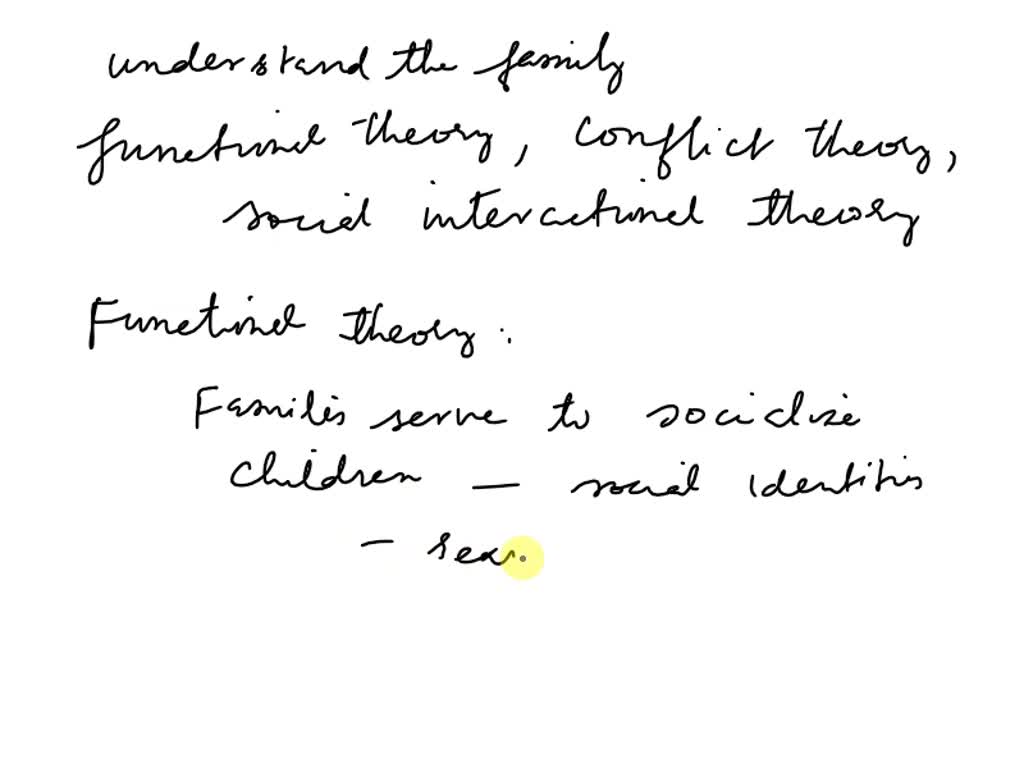 understand the family
functional theory, conflict theory,
social interactional theory
Functional theory :
Families serve to socialize
children – social identities
– sex